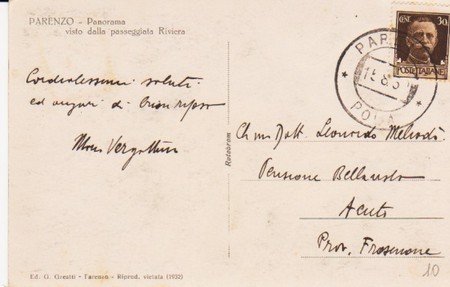 PARENZO - Panorama
visto dalla passeggiata Riviera
Cordialissimi saluti
ed auguri di buon riposo
CENT. 30
POSTE ITALIANE
PAR
15.8.3
POLA
Rotobrom
Ch.mo Dott. Leonardo
Pensione
Acuto
Prov. Frosinone
Ed. G. Greatti - Parenzo - Riprod. vietata (1933)
10